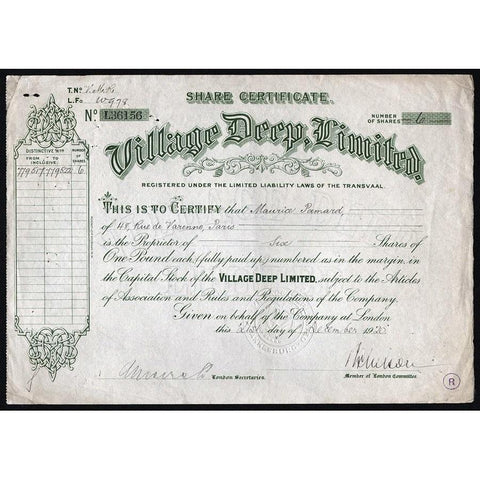 T. No
L. Fo. W978
SHARE CERTIFICATE.
No L36156
NUMBER OF SHARES 6
Village Deep, Limited.
REGISTERED UNDER THE LIMITED LIABILITY LAWS OF THE TRANSVAAL.
DISTINCTIVE Nos
FROM TO INCLUSIVE.
NUMBER OF SHARES
779517 779522 6
THIS IS TO CERTIFY that Maurice Pamard,
of 48, Rue de Varenne, Paris
is the Proprietor of Six Shares of
One Pound each, (fully paid up) numbered as in the margin, in
the Capital Stock of the VILLAGE DEEP LIMITED, subject to the Articles
of Association and Rules and Regulations of the Company.
Given on behalf of the Company at London
this day of December 1920
London Secretaries.
Member of London Committee.
R